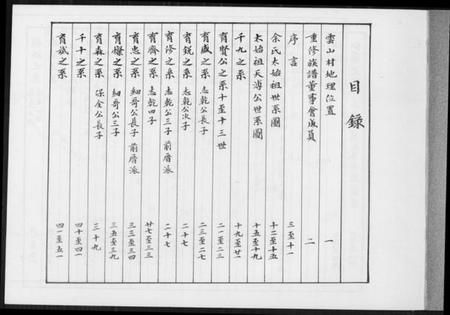 目錄
雲山村地理位置 一
重修族譜董事會成員 二
序言 三至十一
余氏太始祖世系圖 十二至十五
太始祖天澤公世系圖 十五至十九
千九之系 十九至廿一
育賢公之系十至十三世 二一至二三
育盛之系 志乾公長子 二三至二七
育銳之系 志乾公次子 二十七
育修之系 志乾公三子 前厝派 二十七
育齊之系 志乾四子 廿七至三三
育忠之系 細哥公長子 前厝派 三三至三四
育穆之系 細哥公三子 三五至三九
育森之系 保全公長子 三十九
千十之系 四十至四一
育斌之系 四一至五一